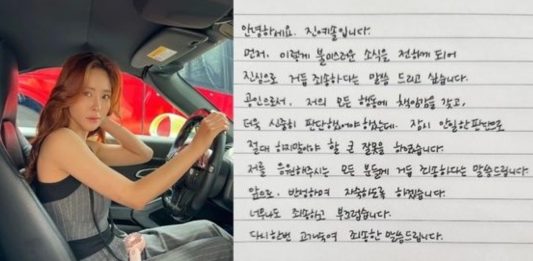 안녕하세요. 진예솔입니다.
먼저, 이렇게 불미스러운 소식을 전하게 되어
진심으로 거듭 죄송하다는 말씀 드리고 싶습니다.
공인으로서, 저의 모든 행동에 책임감을 갖고,
더욱 신중히 판단했어야 했는데, 잠시 안일한 판단으로
절대 하지말아야 할 큰 잘못을 하였습니다.
저를 응원해주시는 모든 분들께 거듭 죄송하다는 말씀드립니다.
앞으로, 반성하며 자숙하도록 하겠습니다.
너무나도 죄송하고 부끄럽습니다.
다시한번 고개숙여 죄송한 말씀드립니다.